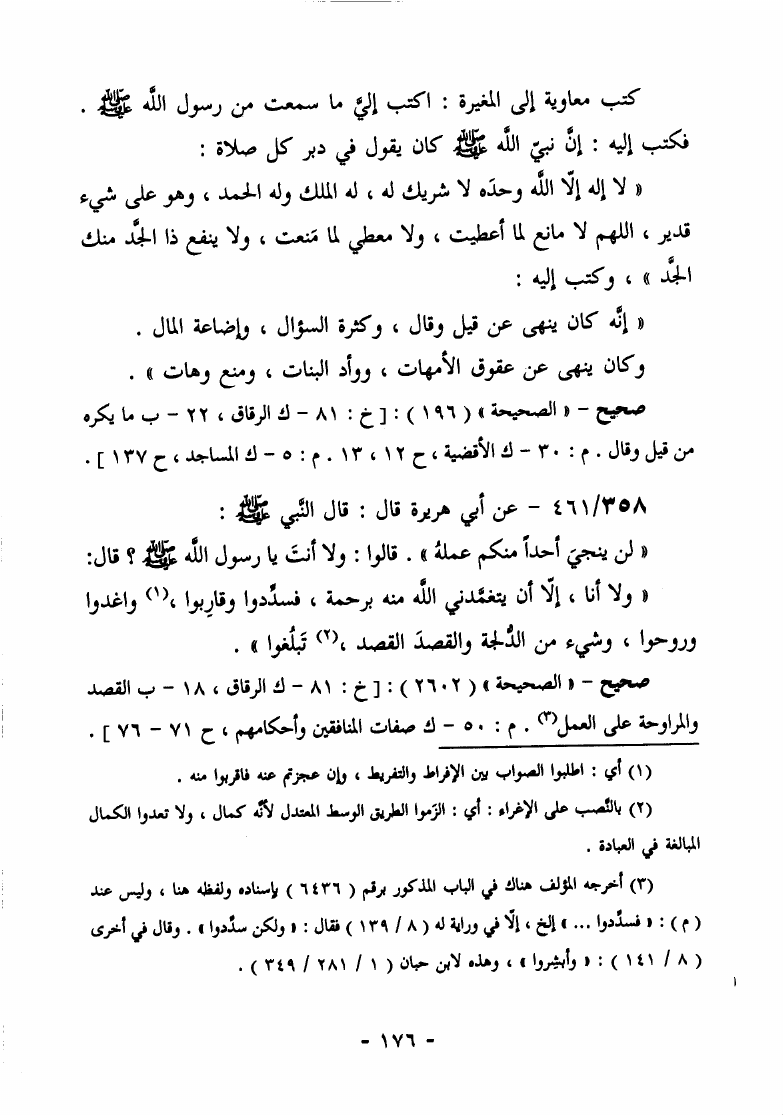 كتب معاوية إلى المغيرة : اكتب إليَّ ما سمعت من رسول اللَّه ﷺ .
فكتب إليه : إنَّ نبيّ اللَّه ﷺ كان يقول في دبر كل صلاة :
« لا إله إلَّا اللَّه وحدَه لا شريك له ، له الملك وله الحمد ، وهو على شيء
قدير ، اللهم لا مانع لما أعطيت ، ولا معطي لما مَنعت ، ولا ينفع ذا الجَّد منك
الجَّد » ، وكتب إليه :
« إنَّه كان ينهى عن قيل وقال ، وكثرة السؤال ، وإضاعة المال .
وكان ينهى عن عقوق الأمهات ، ووأد البنات ، ومنع وهات » .
صحيح – « الصحيحة » ( ١٩٦ ) : [ خ : ٨١ – ك الرقاق ، ٢٢ – ب ما يكره
من قيل وقال . م : ٣٠ – ك الأقضية ، ح ١٢ ، ١٣ . م : ٥ – ك المساجد ، ح ١٣٧ ] .
٤٦١/٣٥٨ – عن أبي هريرة قال : قال النَّبي ﷺ :
« لن ينجيَ أحداً منكم عملهُ » . قالوا : ولا أنتَ يا رسول اللَّه ﷺ ؟ قال:
« ولا أنا ، إلَّا أن يتغمَّدني اللَّه منه برحمة ، فسدِّدوا وقارِبوا ،(١) واغدوا
وروحوا ، وشيء من الدُّلجة والقصدَ القصد ،(٢) تَبلُغوا » .
صحيح – « الصحيحة » ( ٢٦٠٢ ) : [ خ : ٨١ – ك الرقاق ، ١٨ – ب القصد
والمراوحة على العمل(٣) . م : ٥٠ – ك صفات المنافقين وأحكامهم ، ح ٧١ – ٧٦ ] .
(١) أي : اطلبوا الصواب بين الإفراط والتفريط ، وإن عجزتم عنه فاقربوا منه .
(٢) بالنَّصب على الإغراء : أي : الزموا الطريق الوسط المعتدل لأنَّه كمال ، ولا تعدوا الكمال
المبالغة في العبادة .
(٣) أخرجه المؤلف هناك في الباب المذكور برقم ( ٦٤٣٦ ) بإسناده ولفظه هنا ، وليس عند
( م ) : « فسدِّدوا ... » إلخ ، إلَّا في وراية له ( ٨ / ١٣٩ ) فقال : « ولكن سدِّدوا » . وقال في أخرى
( ٨ / ١٤١ ) : « وأبشروا » ، وهذه لابن حبان ( ١ / ٢٨١ / ٣٤٩ ) .
- ١٧٦ -